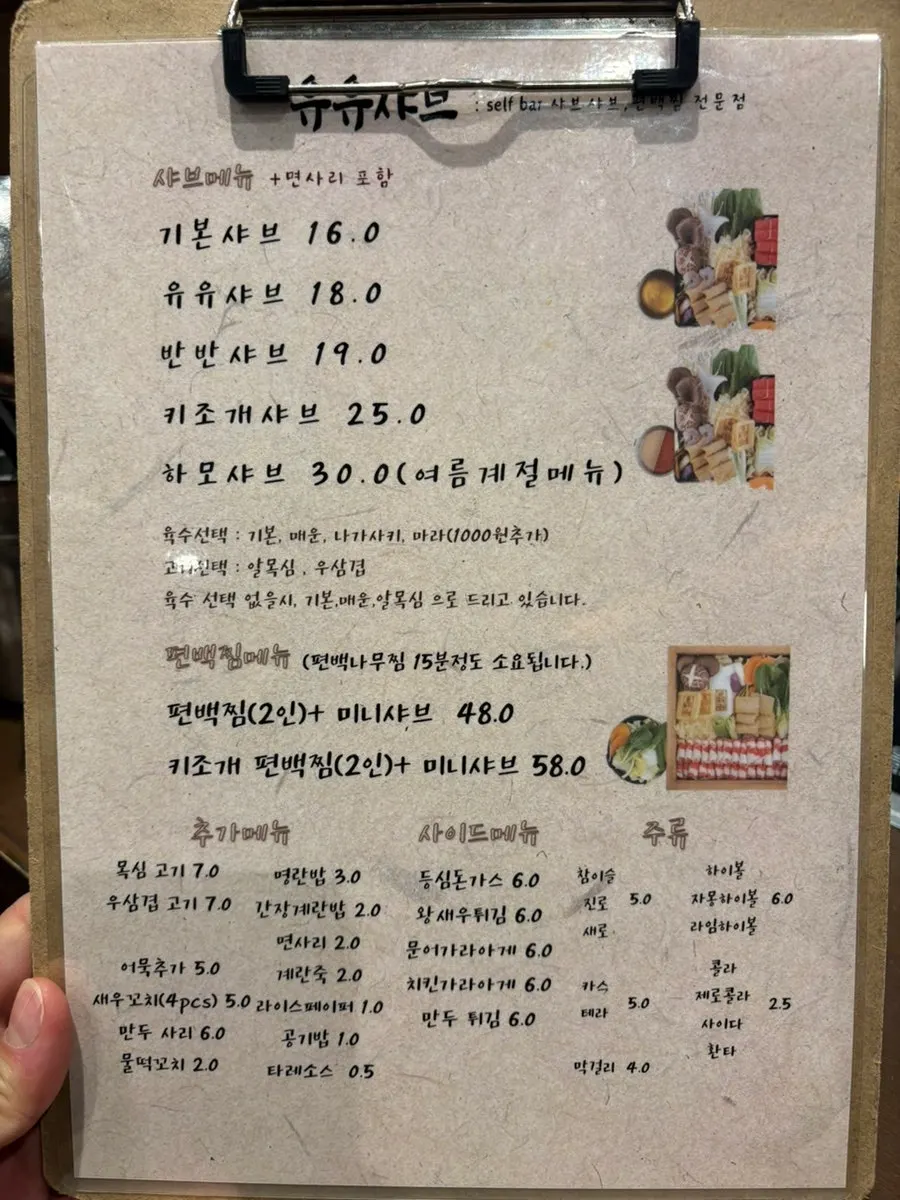 슈슈샤브 : self bar 샤브샤브, 편백찜 전문점
샤브메뉴 +면사리 포함
기본샤브 16.0
유유샤브 18.0
반반샤브 19.0
키조개샤브 25.0
하모샤브 30.0(여름계절메뉴)
육수선택 : 기본, 매운, 나가사키, 마라(1000원추가)
고기선택 : 알목심, 우삼겹
육수 선택 없을시, 기본,매운,알목심 으로 드리고 있습니다.
편백찜메뉴 (편백나무찜 15분정도 소요됩니다.)
편백찜(2인)+ 미니샤브 48.0
키조개 편백찜(2인)+ 미니샤브 58.0
추가메뉴
목심 고기 7.0
우삼겹 고기 7.0
어묵추가 5.0
새우꼬치(4pcs) 5.0
만두 사리 6.0
물떡꼬치 2.0
명란밥 3.0
간장계란밥 2.0
면사리 2.0
계란죽 2.0
라이스페이퍼 1.0
공기밥 1.0
타레소스 0.5
사이드메뉴
등심돈가스 6.0
왕새우튀김 6.0
문어가라아게 6.0
치킨가라아게 6.0
만두 튀김 6.0
주류
참이슬
진로 5.0
새로
카스
테라 5.0
막걸리 4.0
하이볼
자몽하이볼 6.0
라임하이볼
콜라
제로콜라 2.5
사이다
환타